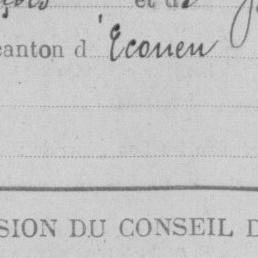 et de
canton d'Ecouen
SION DU CONSEIL D